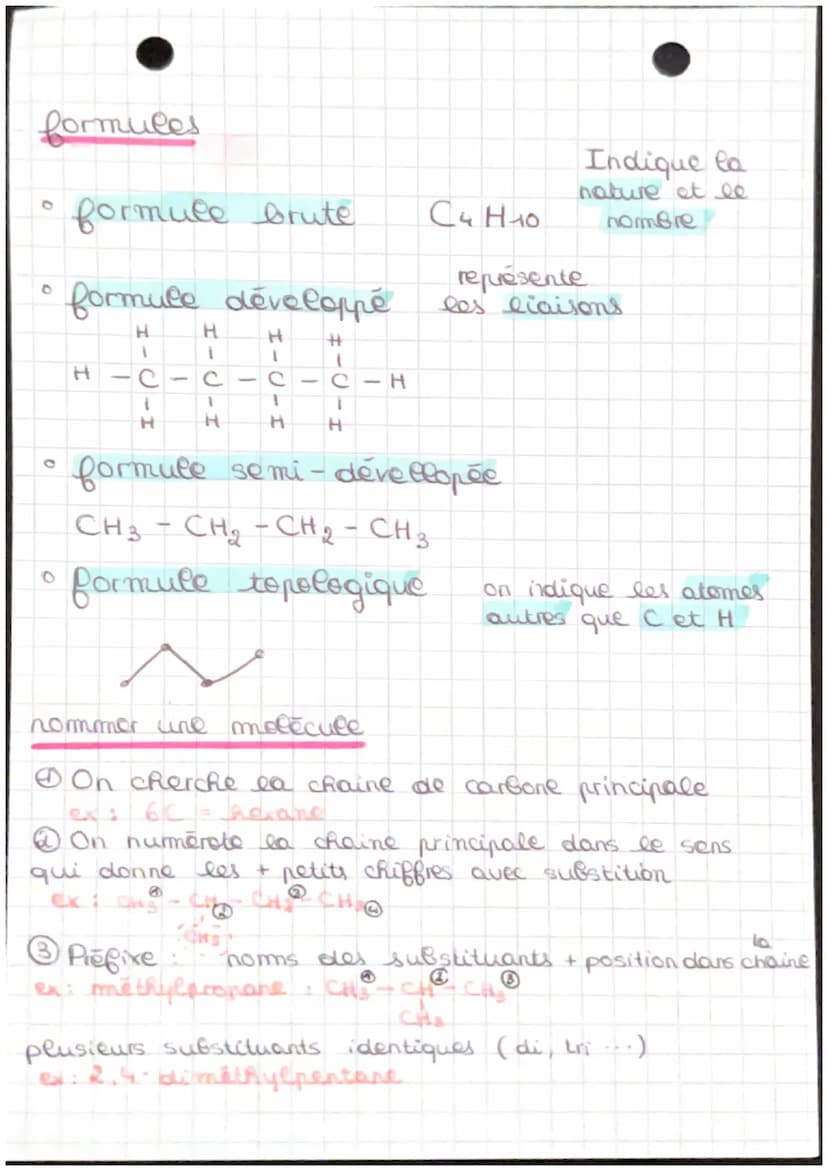 formules
Indique la
nature et le
nombre
° formule brute C4H10
° formule développé représente
les liaisons
H H H H
H - C - C - C - C - H
H H H H
° formule semi-dévellopée
CH3 - CH2 - CH2 - CH3
° formule topologique on indique les atomes
autres que C et H
nommer une molécule
① On cherche la chaine de carbone principale
ex : 6C = hexane
② On numérote la chaine principale dans le sens
qui donne les + petits chiffres avec substition
ex : CH3① - CH② - CH2③ - CH3④
CH3
③ Préfixe : noms des substituants + position dans la chaine
ex : méthylpropane : CH3① - CH② - CH3③
CH3
plusieurs substituants identiques (di, tri ...)
ex : 2,4-diméthylpentane